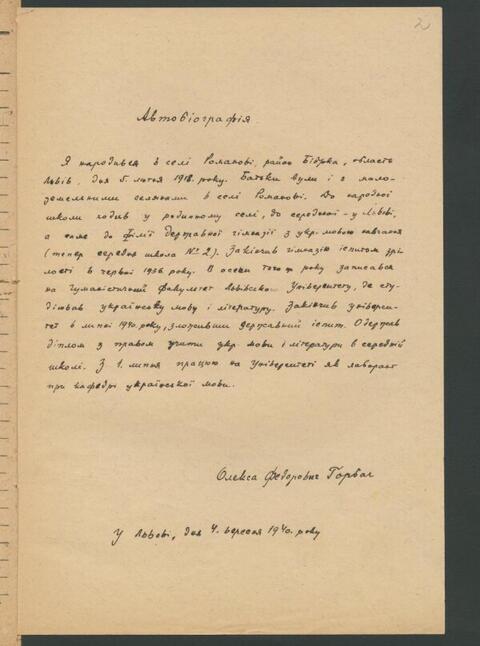 2
Автобіографія.
Я народився в селі Романові, район Бібрка, область
Львів, дня 5. лютня 1918. року. Батьки були і є мало-
земельними селянами в селі Романові. До народної
школи ходив у родинному селі, до середньої - у Львові,
а саме до філії державної гімназії з укр. мовою навчання
(тепер середня школа № 2). Закінчив гімназію іспитом зрі-
лості в червні 1936 року. В осени того ж року записався
на гуманістичний факультет Львівського Університету, де сту-
діював українську мову і літературу. Закінчив універси-
тет в липні 1940. року, зложивши державний іспит. Одержав
діплом з правом учити укр. мови і літератури в середній
школі. З 1. липня працюю на Університеті як лаборант
при кафедрі української мови.
Олекса Федорович Горбач
У Львові, дня 4. вересня 1940. року